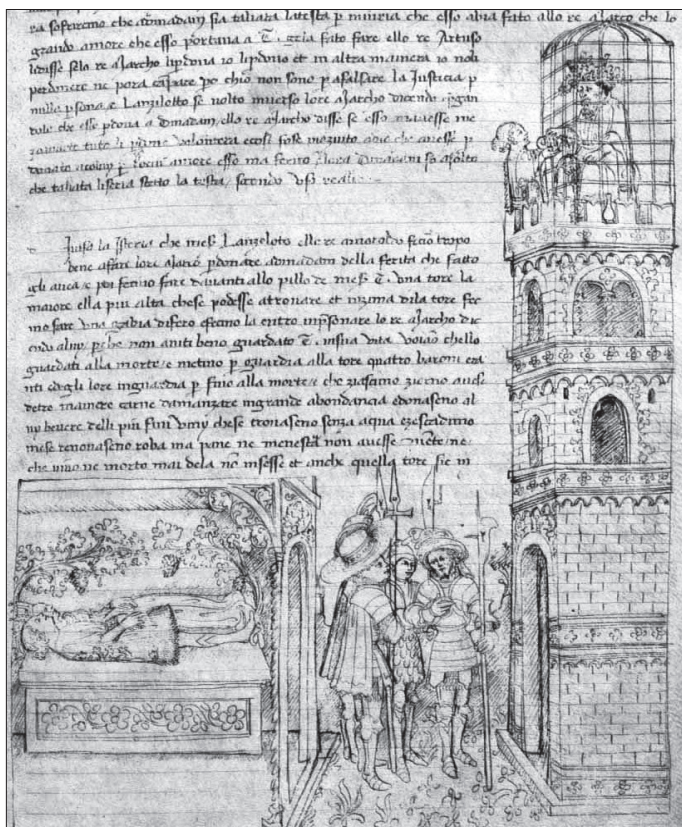 ra soferemo che adinadam sia taliata la testa p iniuria che esso abia fato allo re Marco che lo
grando amore che esso portaua a T. gela fato fare ello re Artuso
li disse selo re Marcho li pdona io li pdonio et in altra mainera io noli
perdonere ne pora canpare po chio non sono p afalsare la Iusticia p
nulla psona e Lanziloto se volto inuerso lore Marcho dicendo e pgan
dole che esse pdona a dinadam, ello re Marcho disse se esso mauesse me
tuto li prime volontera cosi fose che auesse p
donato acoluy p amore esso ma ferito Alora Dinadam fo asolto
che taliata li seria stato la testa secondo usi reali
la Istoria che mes Lanzeloto elle re amoroldo fecino tropo
bene affare lore Marco pdonare adinadam della ferita che fatto
gli auea e poi ferino fare dauanti allo pillo de mes T. vna tore la
maiore ella piu alta chese podesse atrouare et inzima dila tore fec
ino fare vna gabia difero efecino la entro inpsonare lo re Marcho dic
endo aluy p che non auiti beno guardato T. insua vita voiamo chello
guardati alla morte e metino p guardia alla tore quatro baroni
ti edegli lore inguardia p fino alla morte e che ziascuno zorno auesse
detre mainere carne damanzare ingrande abondancia edonaseno al
uy beuere delli piu fini viny chese trouaseno senza aqua ezescaduno
mese renouaseno roba ma pane ne menestra non auesse niete ne
che viuo ne morto mai dela no insesse et anche quella tore sie in